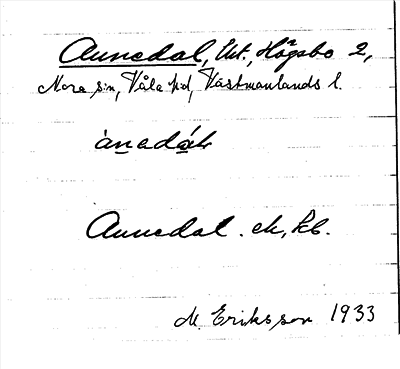 Annedal, Ut., Högsbo 2,
Nora sn, Våla hd, Västmanlands l.
ànadá
Annedal. ek, kb.
M. Eriksson 1933